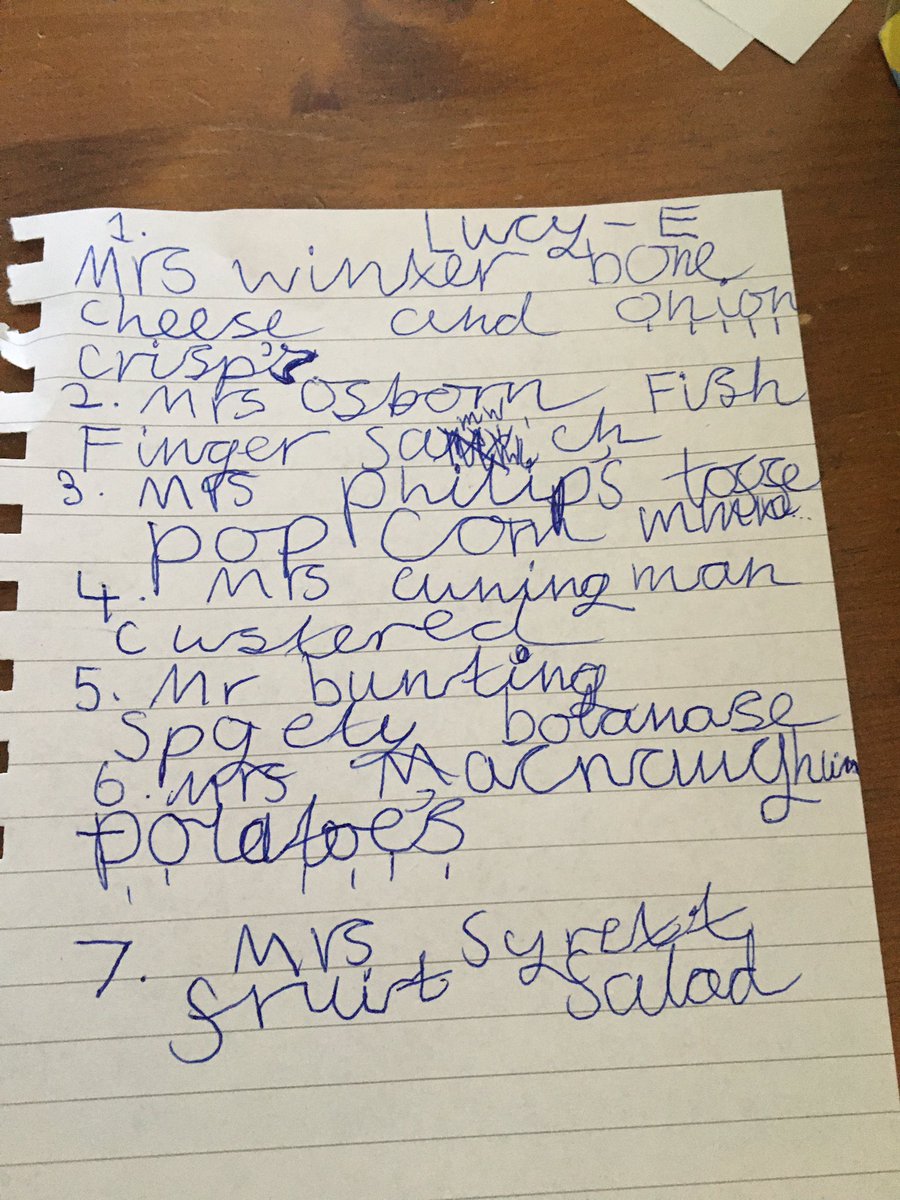 1. Lucy-E
Mrs winter bone
cheese and onion
crisp's
2. Mrs Osborn Fish
Finger sanwich
3. Mrs philips
pop corn
4. Mrs cuningman
custered
5. Mr bunting
Spgety bolanase
6. Mrs Macnaughum
potatoe's
7. Mrs Syrett
fruit Salad